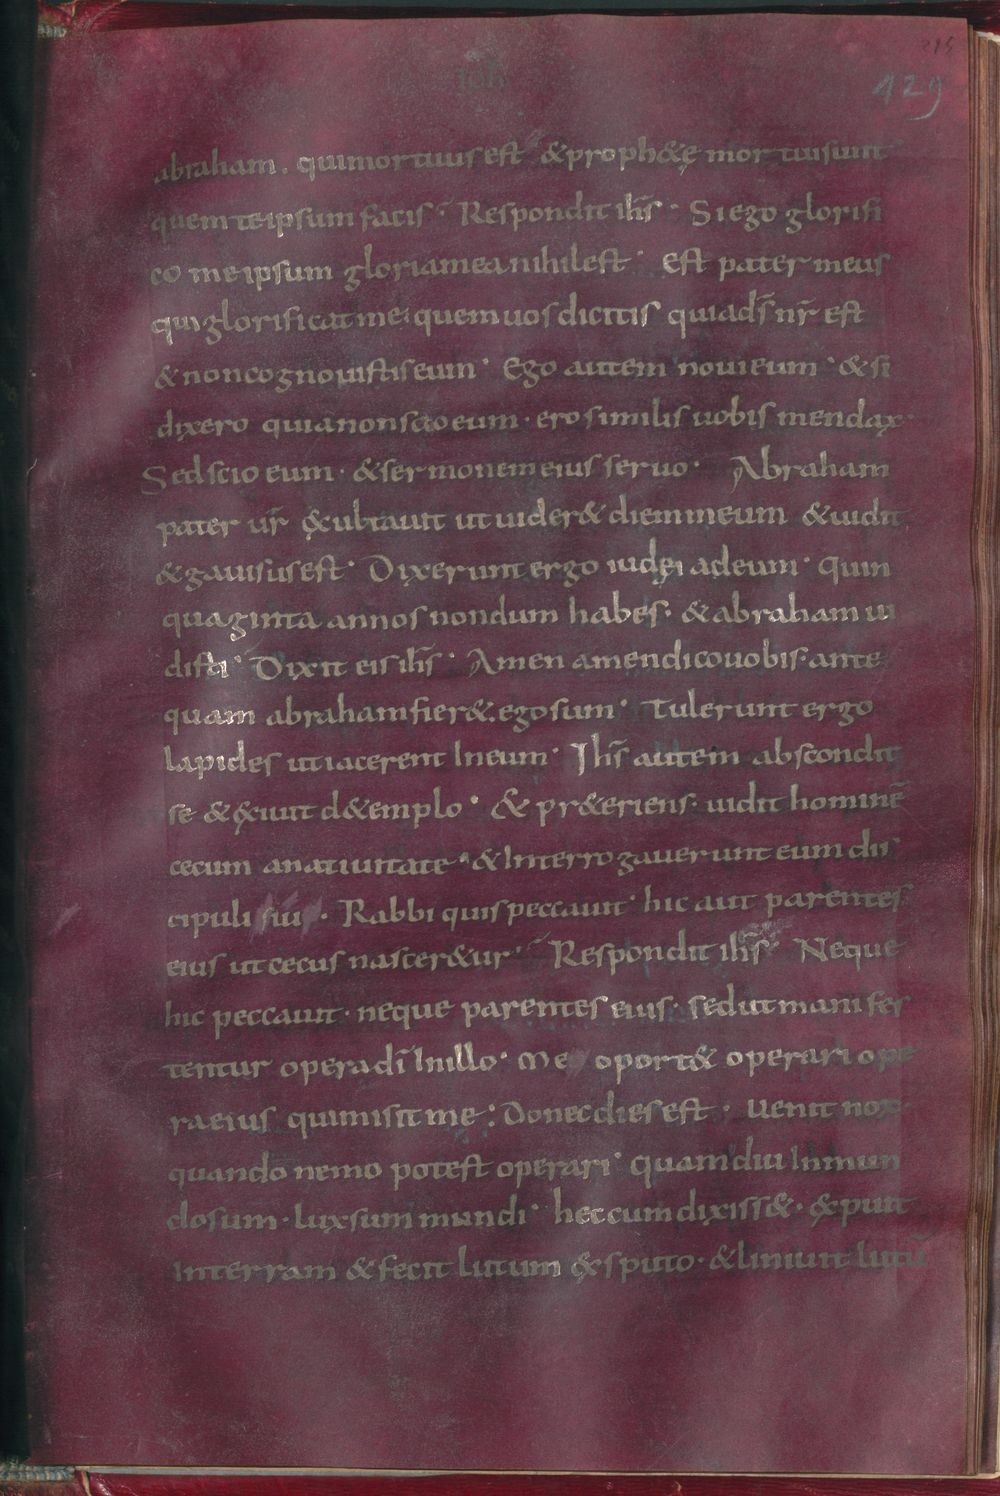 ioh
215
429
abraham. qui mortuus est & proph&ę mortui sunt
quem te ipsum facis · Respondit ih̄s · Si ego glorifi
co me ipsum gloria mea nihil est · Est pater meus
qui glorificat me; quem uos dicitis quia d̄s nr̄ est
& non cognouistis eum · Ego autem noui eum · & si
dixero quia non scio eum · ero similis uobis mendax ·
Sed scio eum · & sermonem eius seruo · Abraham
pater ur̄ &ultauit ut uider& diem meum & uidit
& gauisus est · Dixerunt ergo iudęi ad eum · Quin
quaginta annos nondum habes · & abraham ui
disti · Dixit eis ih̄s · Amen amen dico uobis · ante
quam abraham fier& ego sum · Tulerunt ergo
lapides ut iacerent In eum · Ih̄s autem abscondit
se & &iuit d& emplo · & pr&eriens · uidit hominē
cecum a natiuitate · & Interrogauerunt eum dis
cipuli sui · Rabbi quis peccauit · hic aut parentes
eius ut cecus nascer&ur · Respondit ih̄s · Neque
hic peccauit · neque parentes eius · sed ut manifes
tentur opera dī In illo · Me oport& operari ope
ra eius qui misit me : Donec dies est · uenit nox ·
quando nemo potest operari · quam diu In mun
do sum · lux sum mundi · hec cum dixiss& · &puit
In terram & fecit lutum & sputo · & liniuit lutū